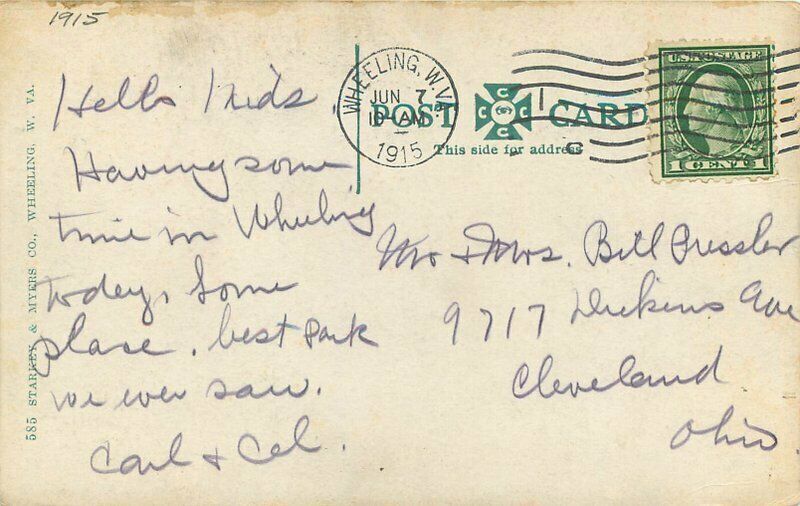 1915
Hello Kids.
Having some
time in Wheeling
today. Some
place. best park
we ever saw.
Carl & Cel.
585 STARKEY & MYERS CO., WHEELING, W. VA.
WHEELING, W. VA.
JUN 7
10-AM
1915
POST CARD
C C C C
This side for address
U.S. POSTAGE
1 CENT 1
Mr & Mrs. Bill Pressler
9717 Dickens Ave
Cleveland
Ohio